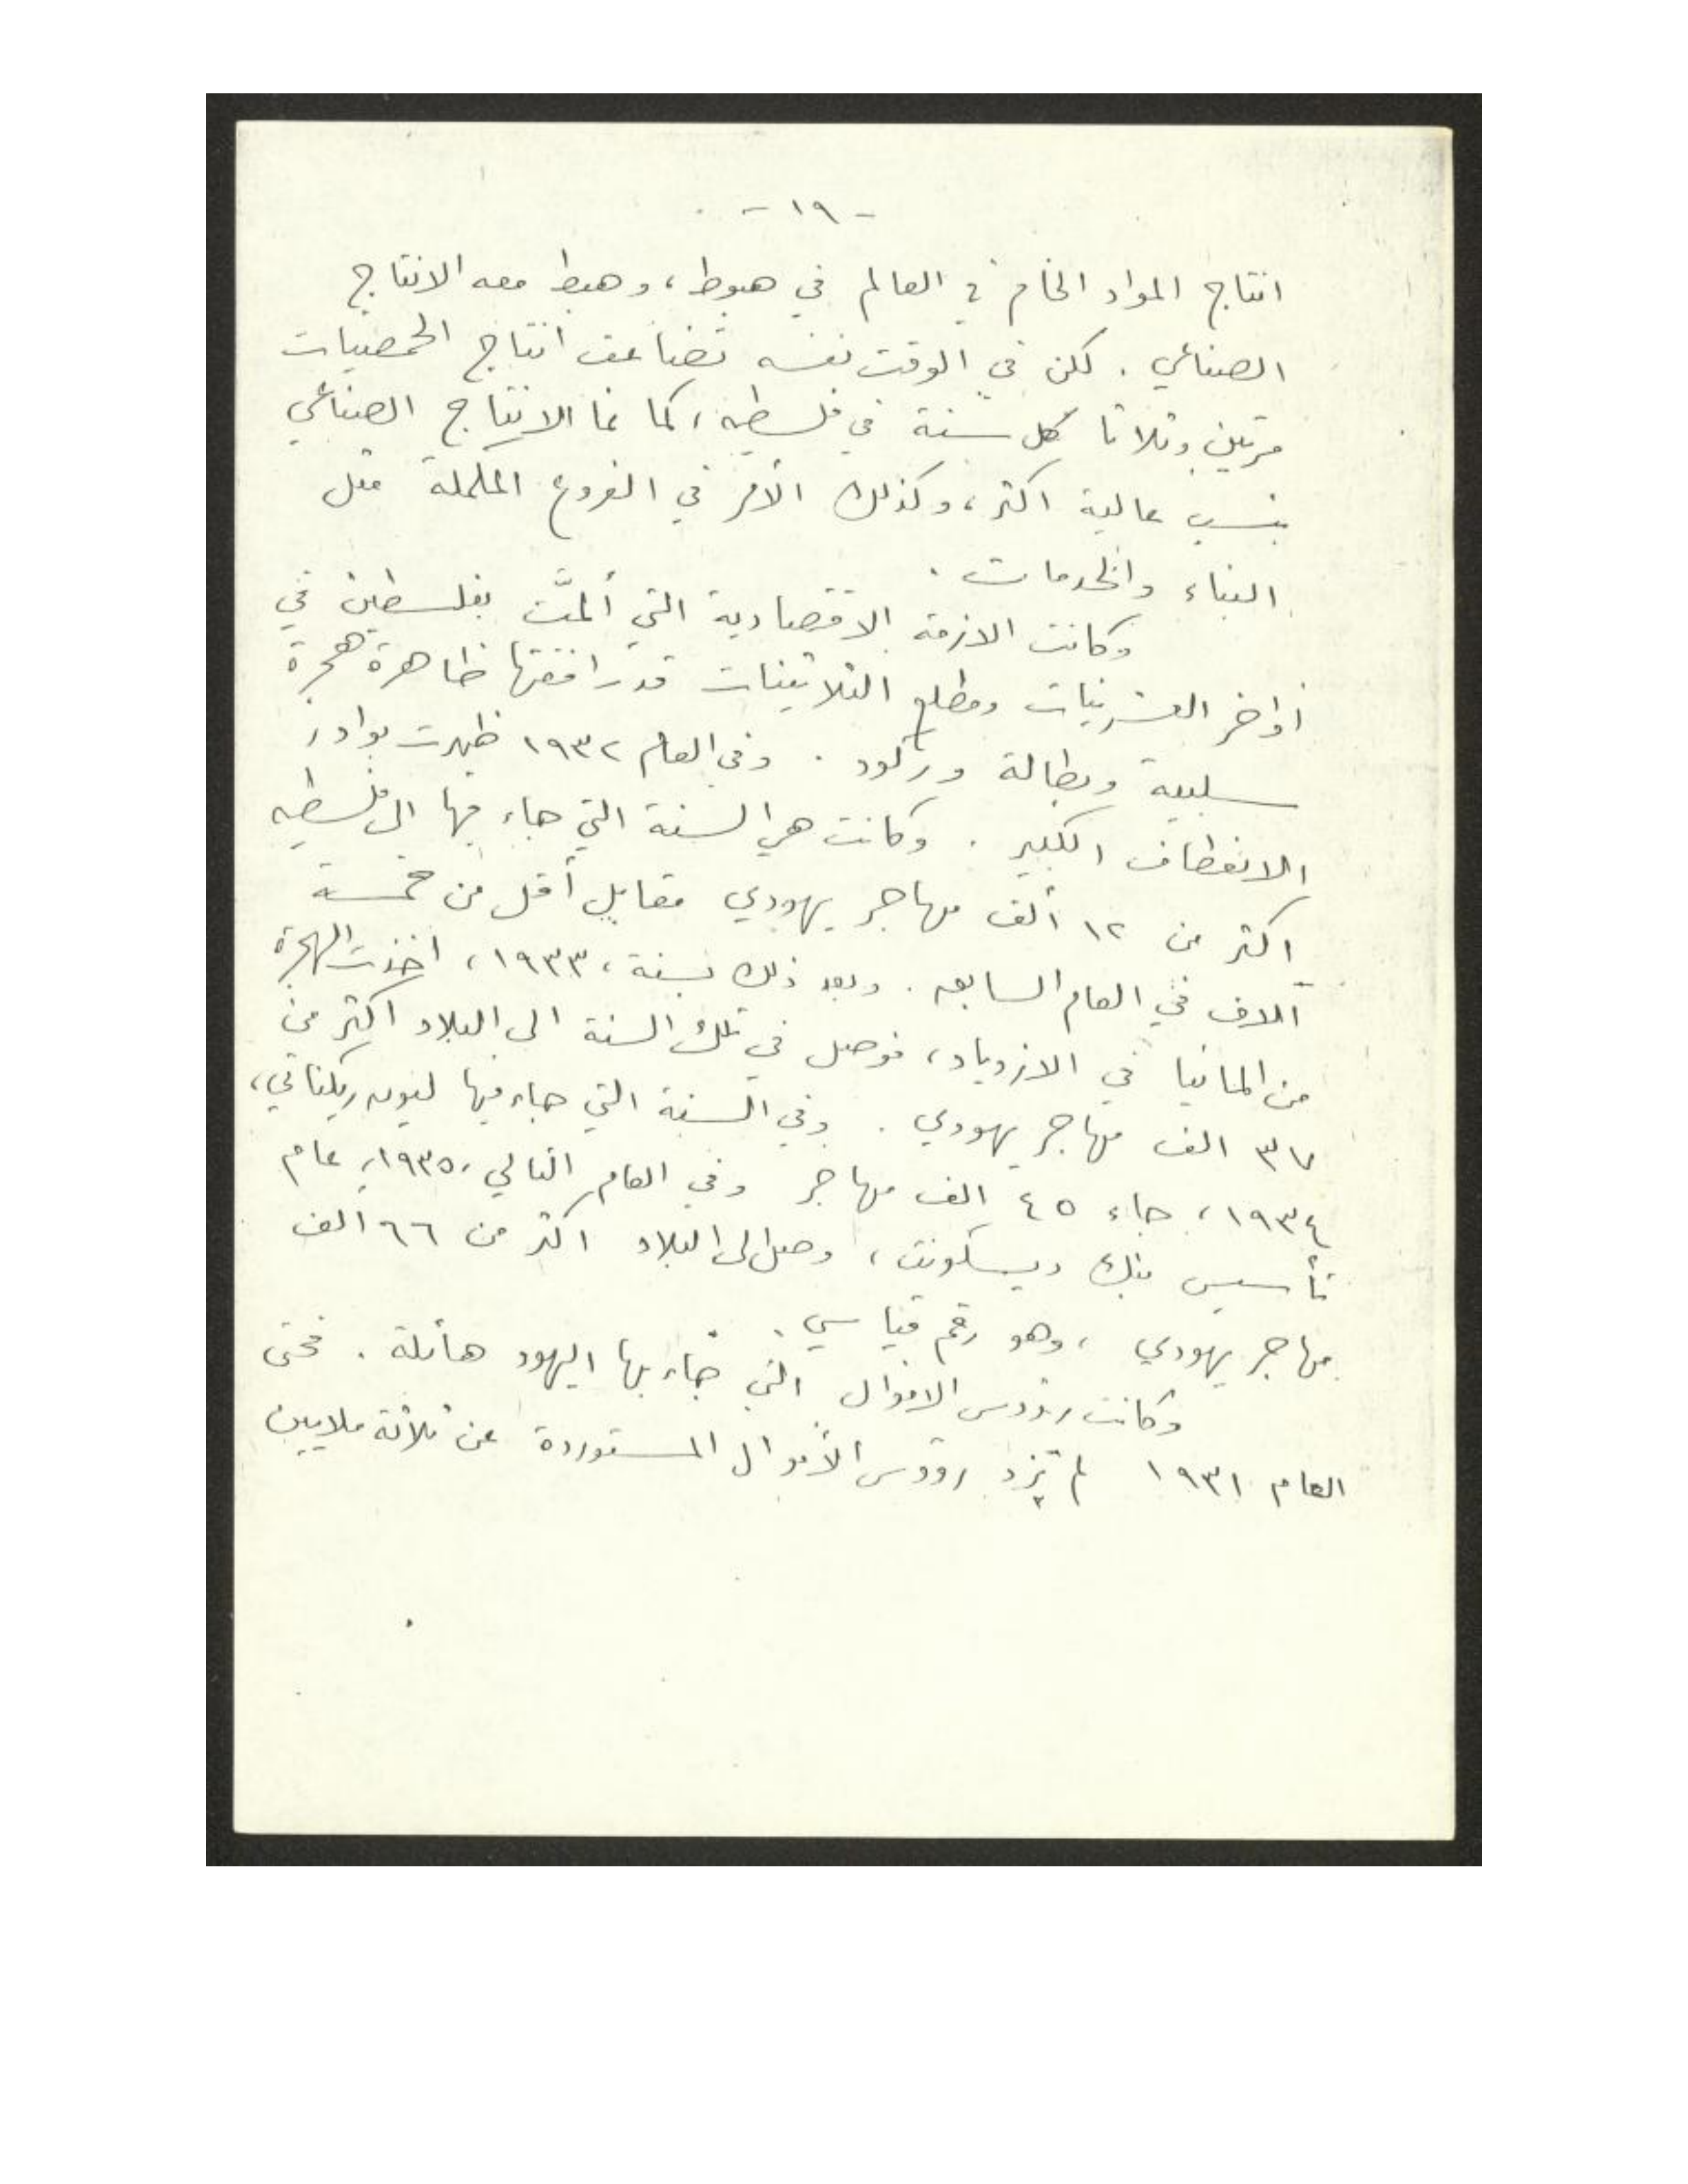 - ١٩ -
انتاج المواد الخام في العالم في هبوط، وهبط معه الانتاج
الصناعي. لكن في الوقت نفسه تضاعف انتاج الحمضيات
مرتين وثلاثا كل سنة في فلسطين، كما نما الانتاج الصناعي
بنسب عالية اكثر، وكذلك الأمر في الفروع المكملة مثل
البناء والخدمات.
وكانت الازمة الاقتصادية التي ألمَّت بفلسطين في
أواخر العشرينيات ومطلع الثلاثينات قد رافقتها ظاهرة هجرة
سلبية وبطالة وركود. وفي العام ١٩٣٢ ظهرت بوادر
الانعطاف الكبير. وكانت هي السنة التي جاء فيها الى فلسطين
اكثر من ١٢ ألف مهاجر يهودي مقابل أقل من خمسة
آلاف في العام السابق. وبعد ذلك بسنة، ١٩٣٣، اخذت الهجرة
من المانيا في الازدياد، فوصل في تلك السنة الى البلاد اكثر من
٣٧ الف مهاجر يهودي. وفي السنة التي جاء فيها ليون ريكناتي،
١٩٣٤، جاء ٤٥ الف مهاجر وفي العام التالي، ١٩٣٥، عام
تأسيس بنك ديسكونت، وصل الى البلاد اكثر من ٦٦ الف
مهاجر يهودي، وهو رقم قياسي.
وكانت رؤوس الاموال التي جاء بها اليهود هائلة. فحتى
العام ١٩٣١ لم تزد رؤوس الأموال المستوردة عن ثلاثة ملايين